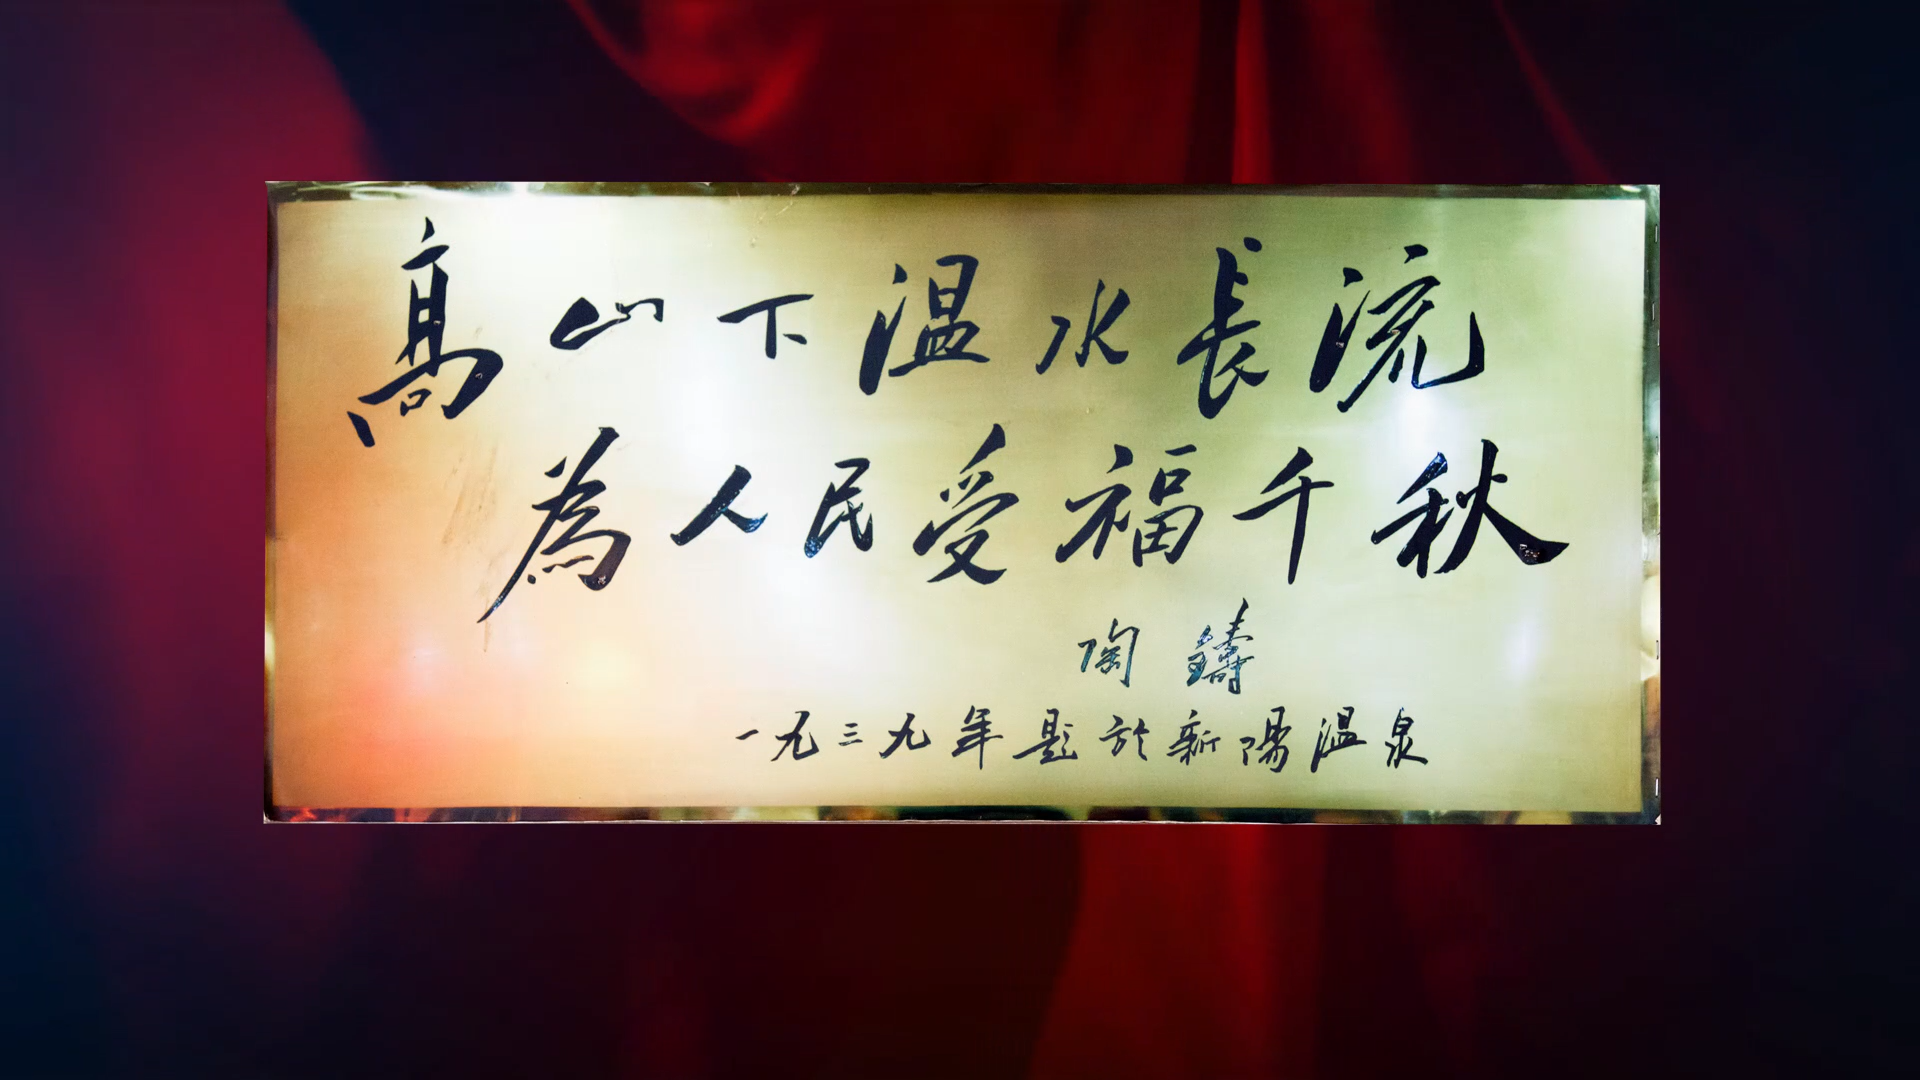 高山下温水長流
為人民受福千秋
陶鑄
一九三九年題於新陽温泉